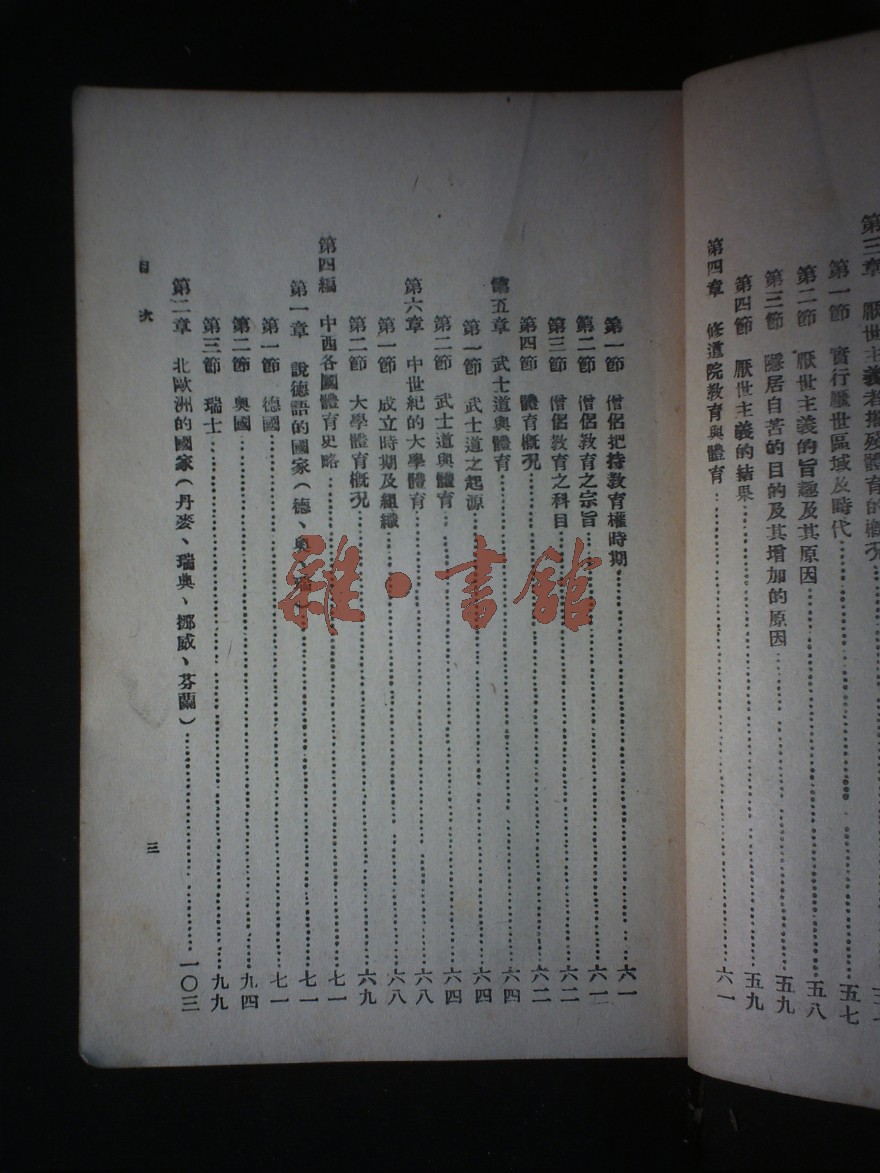 第三章 厭世主義者摧殘體育的概況
第一節 實行厭世區域及時代 五七
第二節 厭世主義的旨趣及其原因 五八
第三節 隱居自苦的目的及其增加的原因 五九
第四節 厭世主義的結果 五九
第四章 修道院教育與體育 六一
第一節 僧侶把持教育權時期 六一
第二節 僧侶教育之宗旨 六一
第三節 僧侶教育之科目 六二
第四節 體育概況 六二
第五章 武士道與體育 六四
第一節 武士道之起源 六四
第二節 武士道與體育 六四
第六章 中世紀的大學體育 六八
第一節 成立時期及組織 六八
第二節 大學體育概況 六九
第四編 中西各國體育史略 七一
第一章 說德語的國家(德、奧、瑞) 七一
第一節 德國 七一
第二節 奧國 九四
第三節 瑞士 九九
第二章 北歐洲的國家(丹麥、瑞典、挪威、芬蘭) 一〇三
目次 三
雜·書館